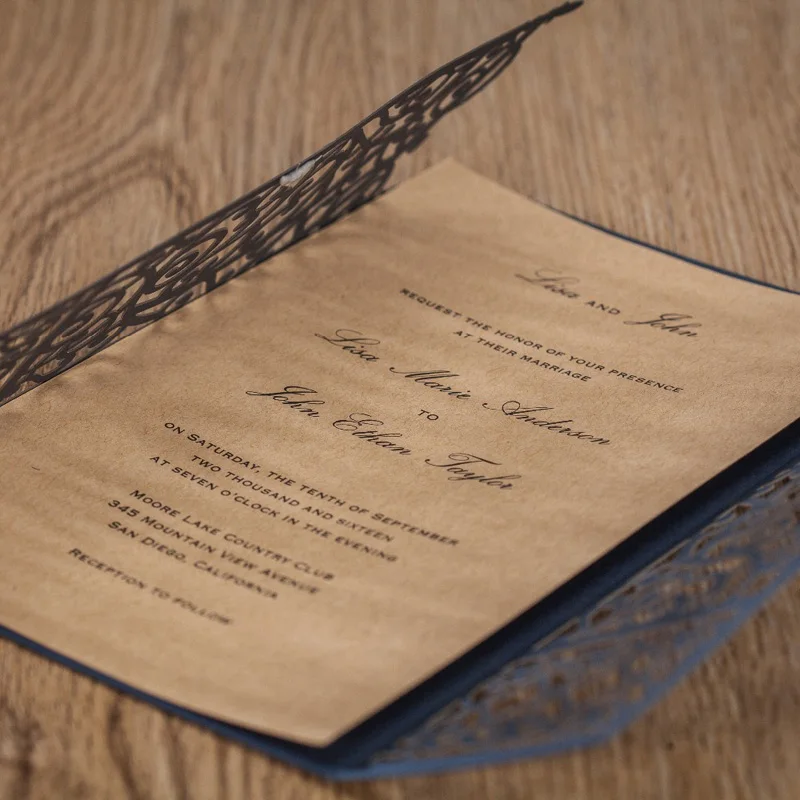 Lisa AND John
REQUEST THE HONOR OF YOUR PRESENCE
AT THEIR MARRIAGE
Lisa Marie Anderson
TO
John Ethan Taylor
ON SATURDAY, THE TENTH OF SEPTEMBER
TWO THOUSAND AND SIXTEEN
AT SEVEN O'CLOCK IN THE EVENING
MOORE LAKE COUNTRY CLUB
345 MOUNTAIN VIEW AVENUE
SAN DIEGO, CALIFORNIA
RECEPTION TO FOLLOW